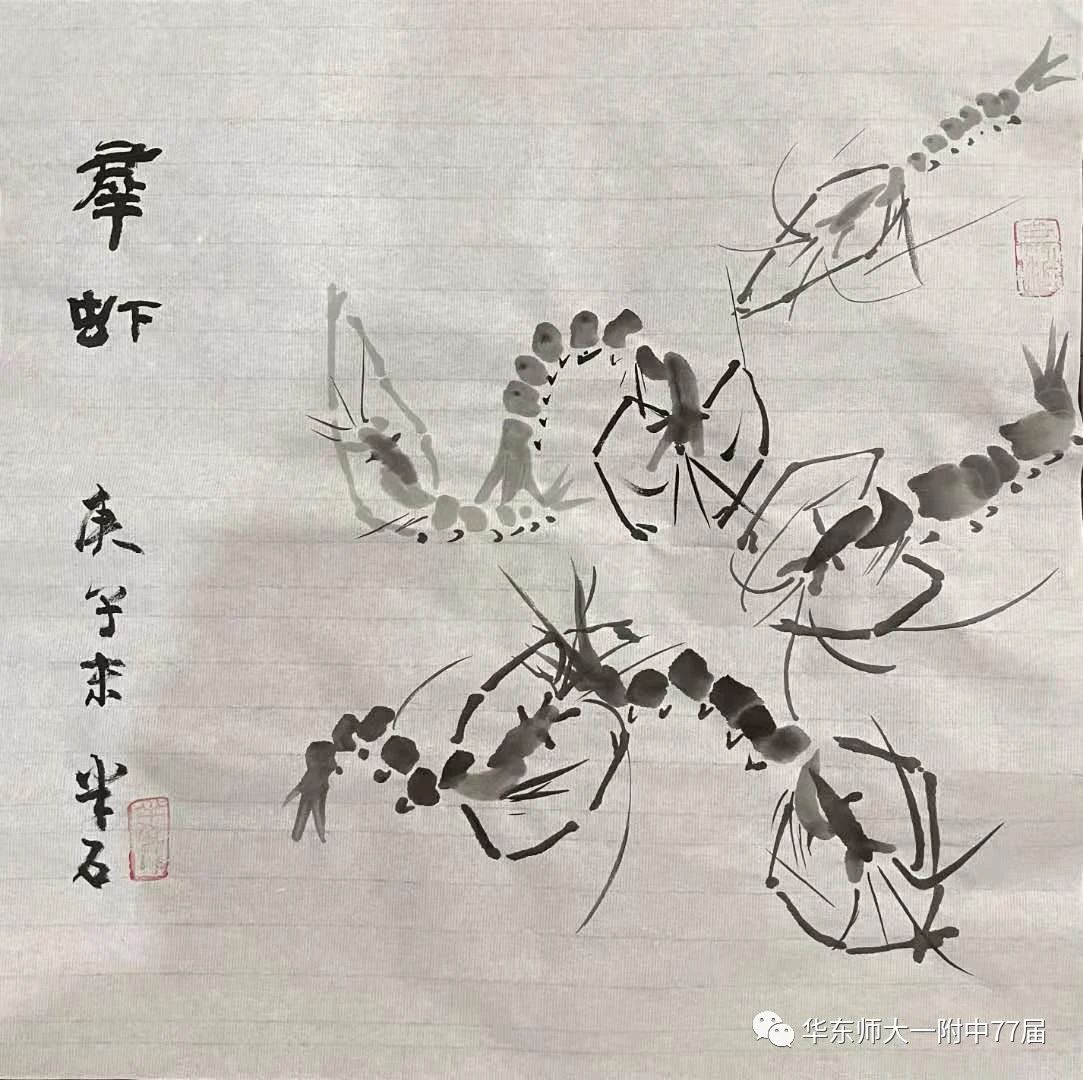 羣虾
庚子末 半石
华东师大一附中77届